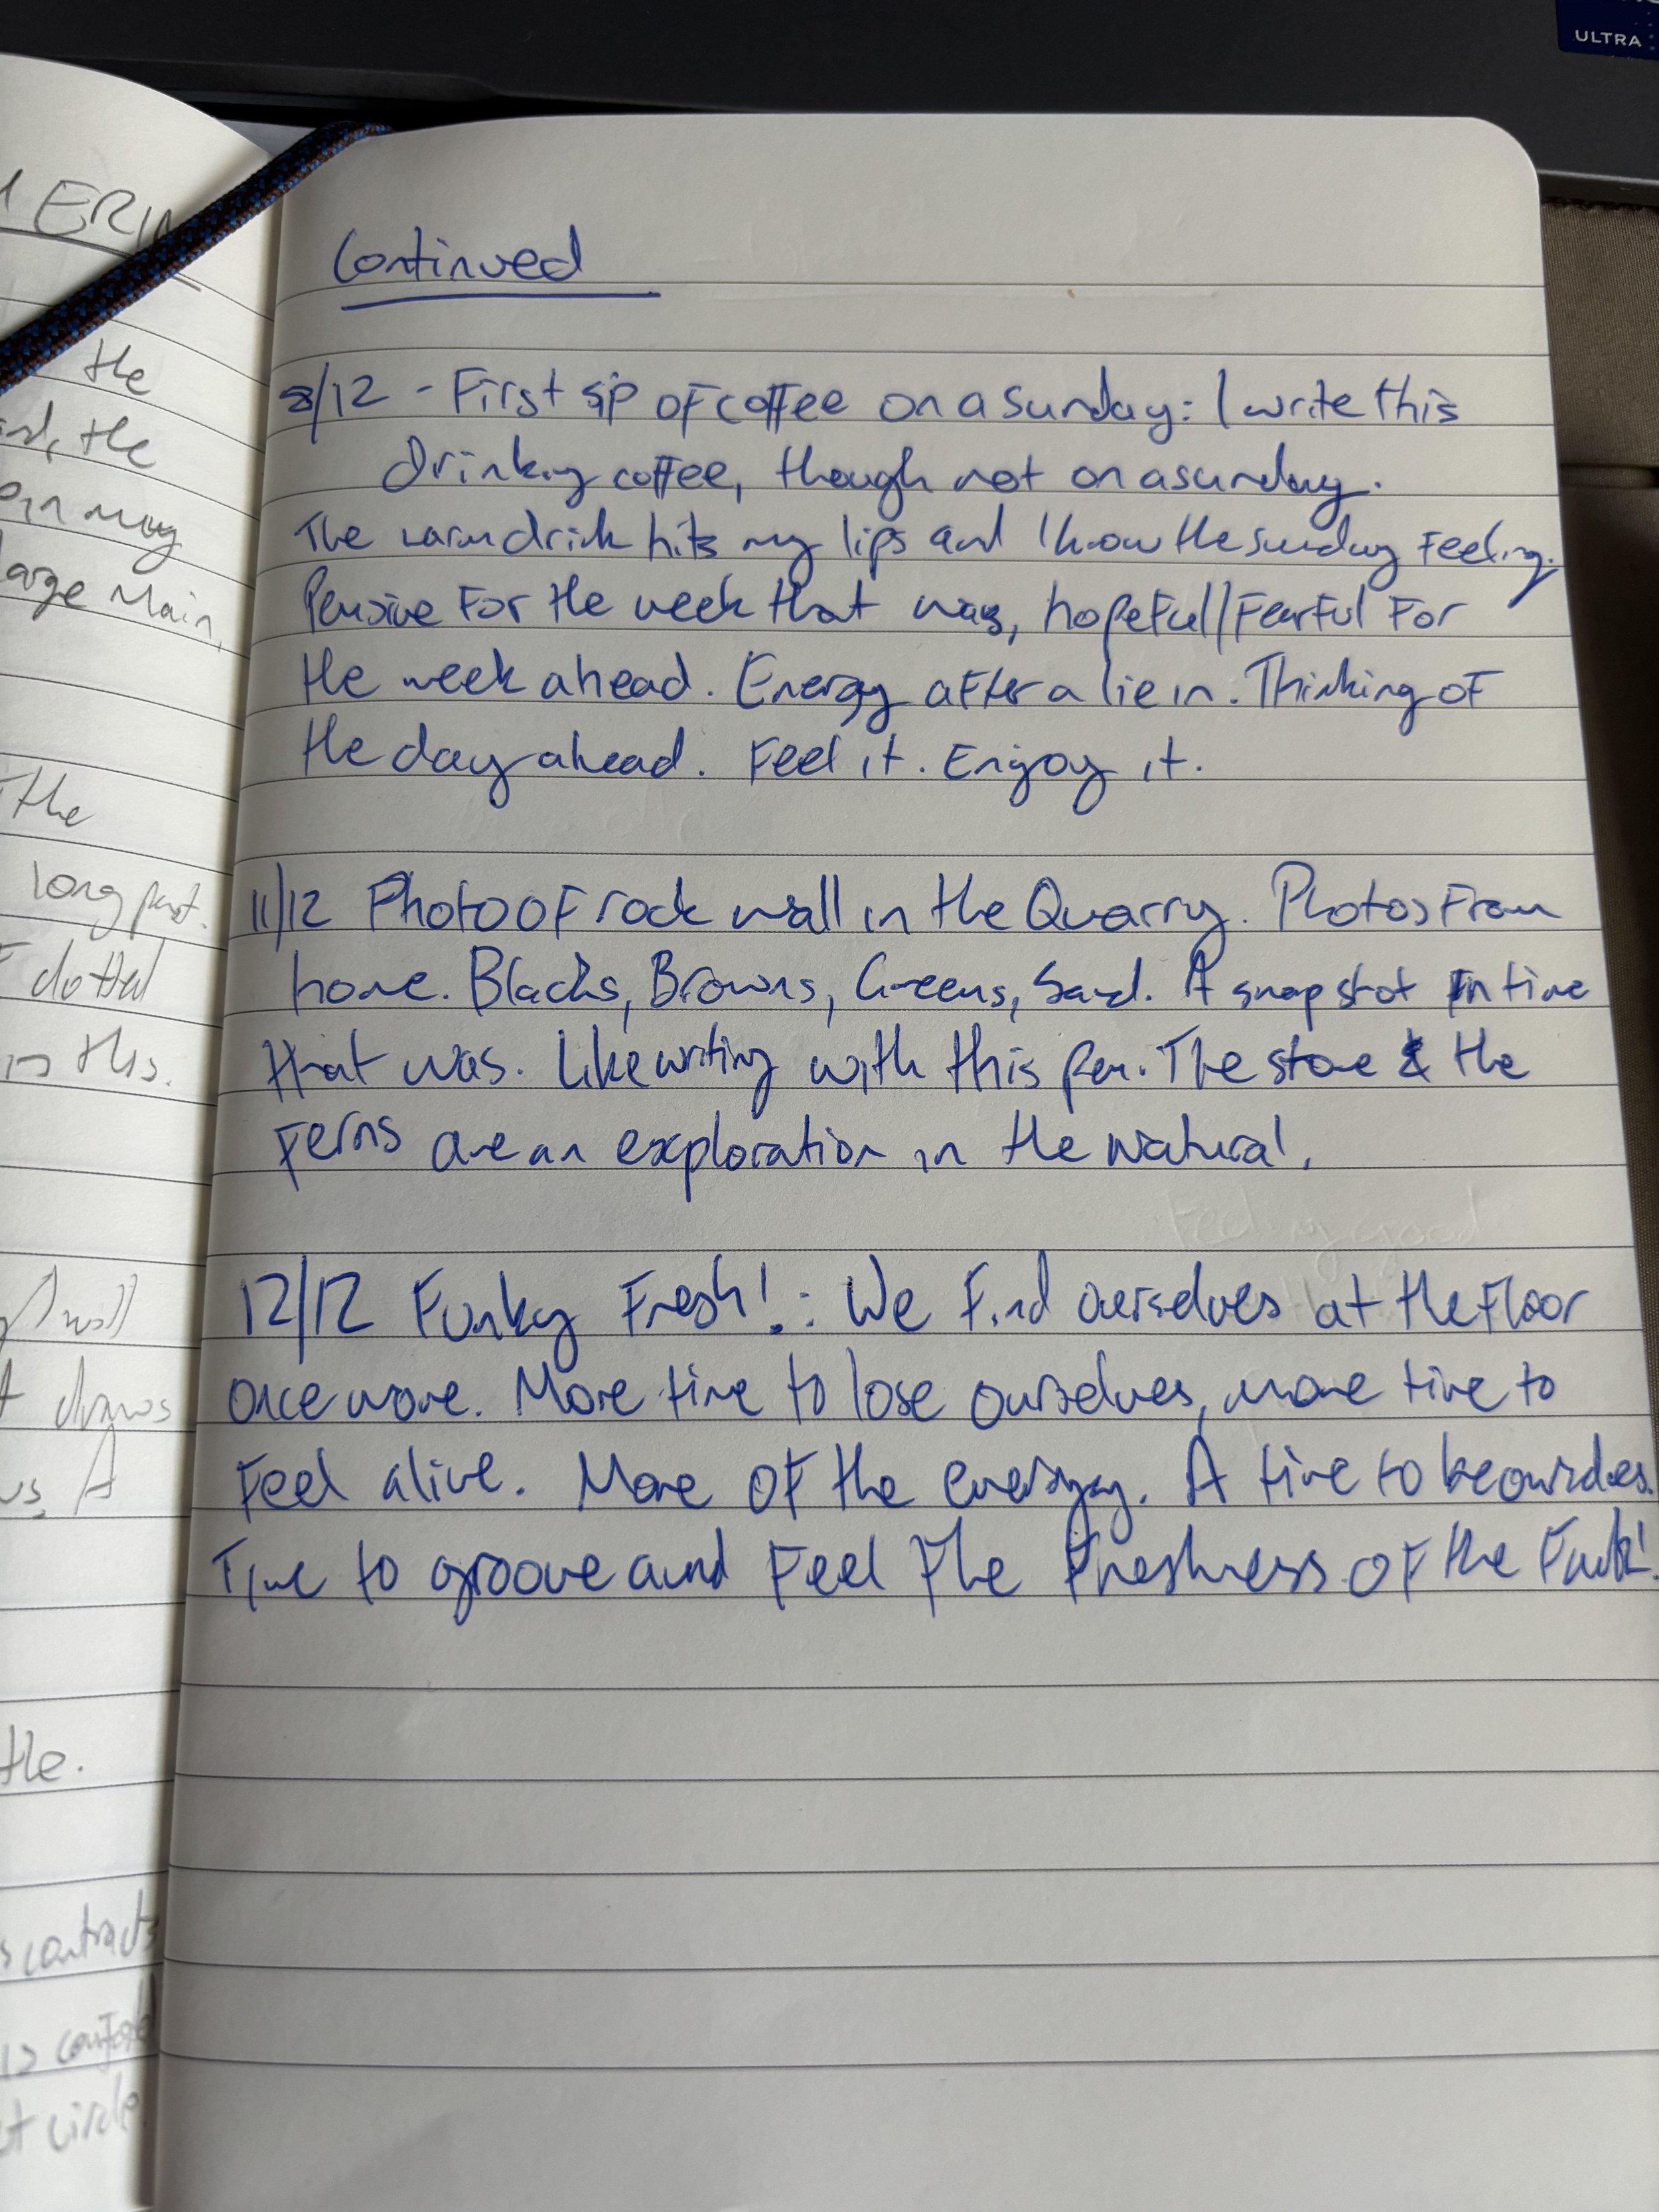 ULTRA
ERIN
the
the
may
large Main,
the
long past.
dotted
in this.
I will
draws
A
the.
contracts
is
circle
Continued
8/12 - First sip of coffee on a Sunday: I write this
Drinking coffee, though not on a sunday.
The warm drink hits my lips and I know the sunday Feeling.
Pensive For the week that was, hopeful/Fearful For
the week ahead. Energy after a lie in. Thinking of
the day ahead. Feel it. Enjoy it.
11/12 Photo of rock wall in the Quarry. Photos From
home. Blacks, Browns, Greens, Sand. A snapshot in time
that was. Like writing with this pen. The stone & the
Ferns are an exploration in the Natural.
Feeling good
12/12 Funky Fresh!: We Find ourselves at the Floor
once more. More time to lose ourselves, more time to
Feel alive. More of the energy. A time to be ourselves.
Time to groove and Feel The Freshness of the Funk!